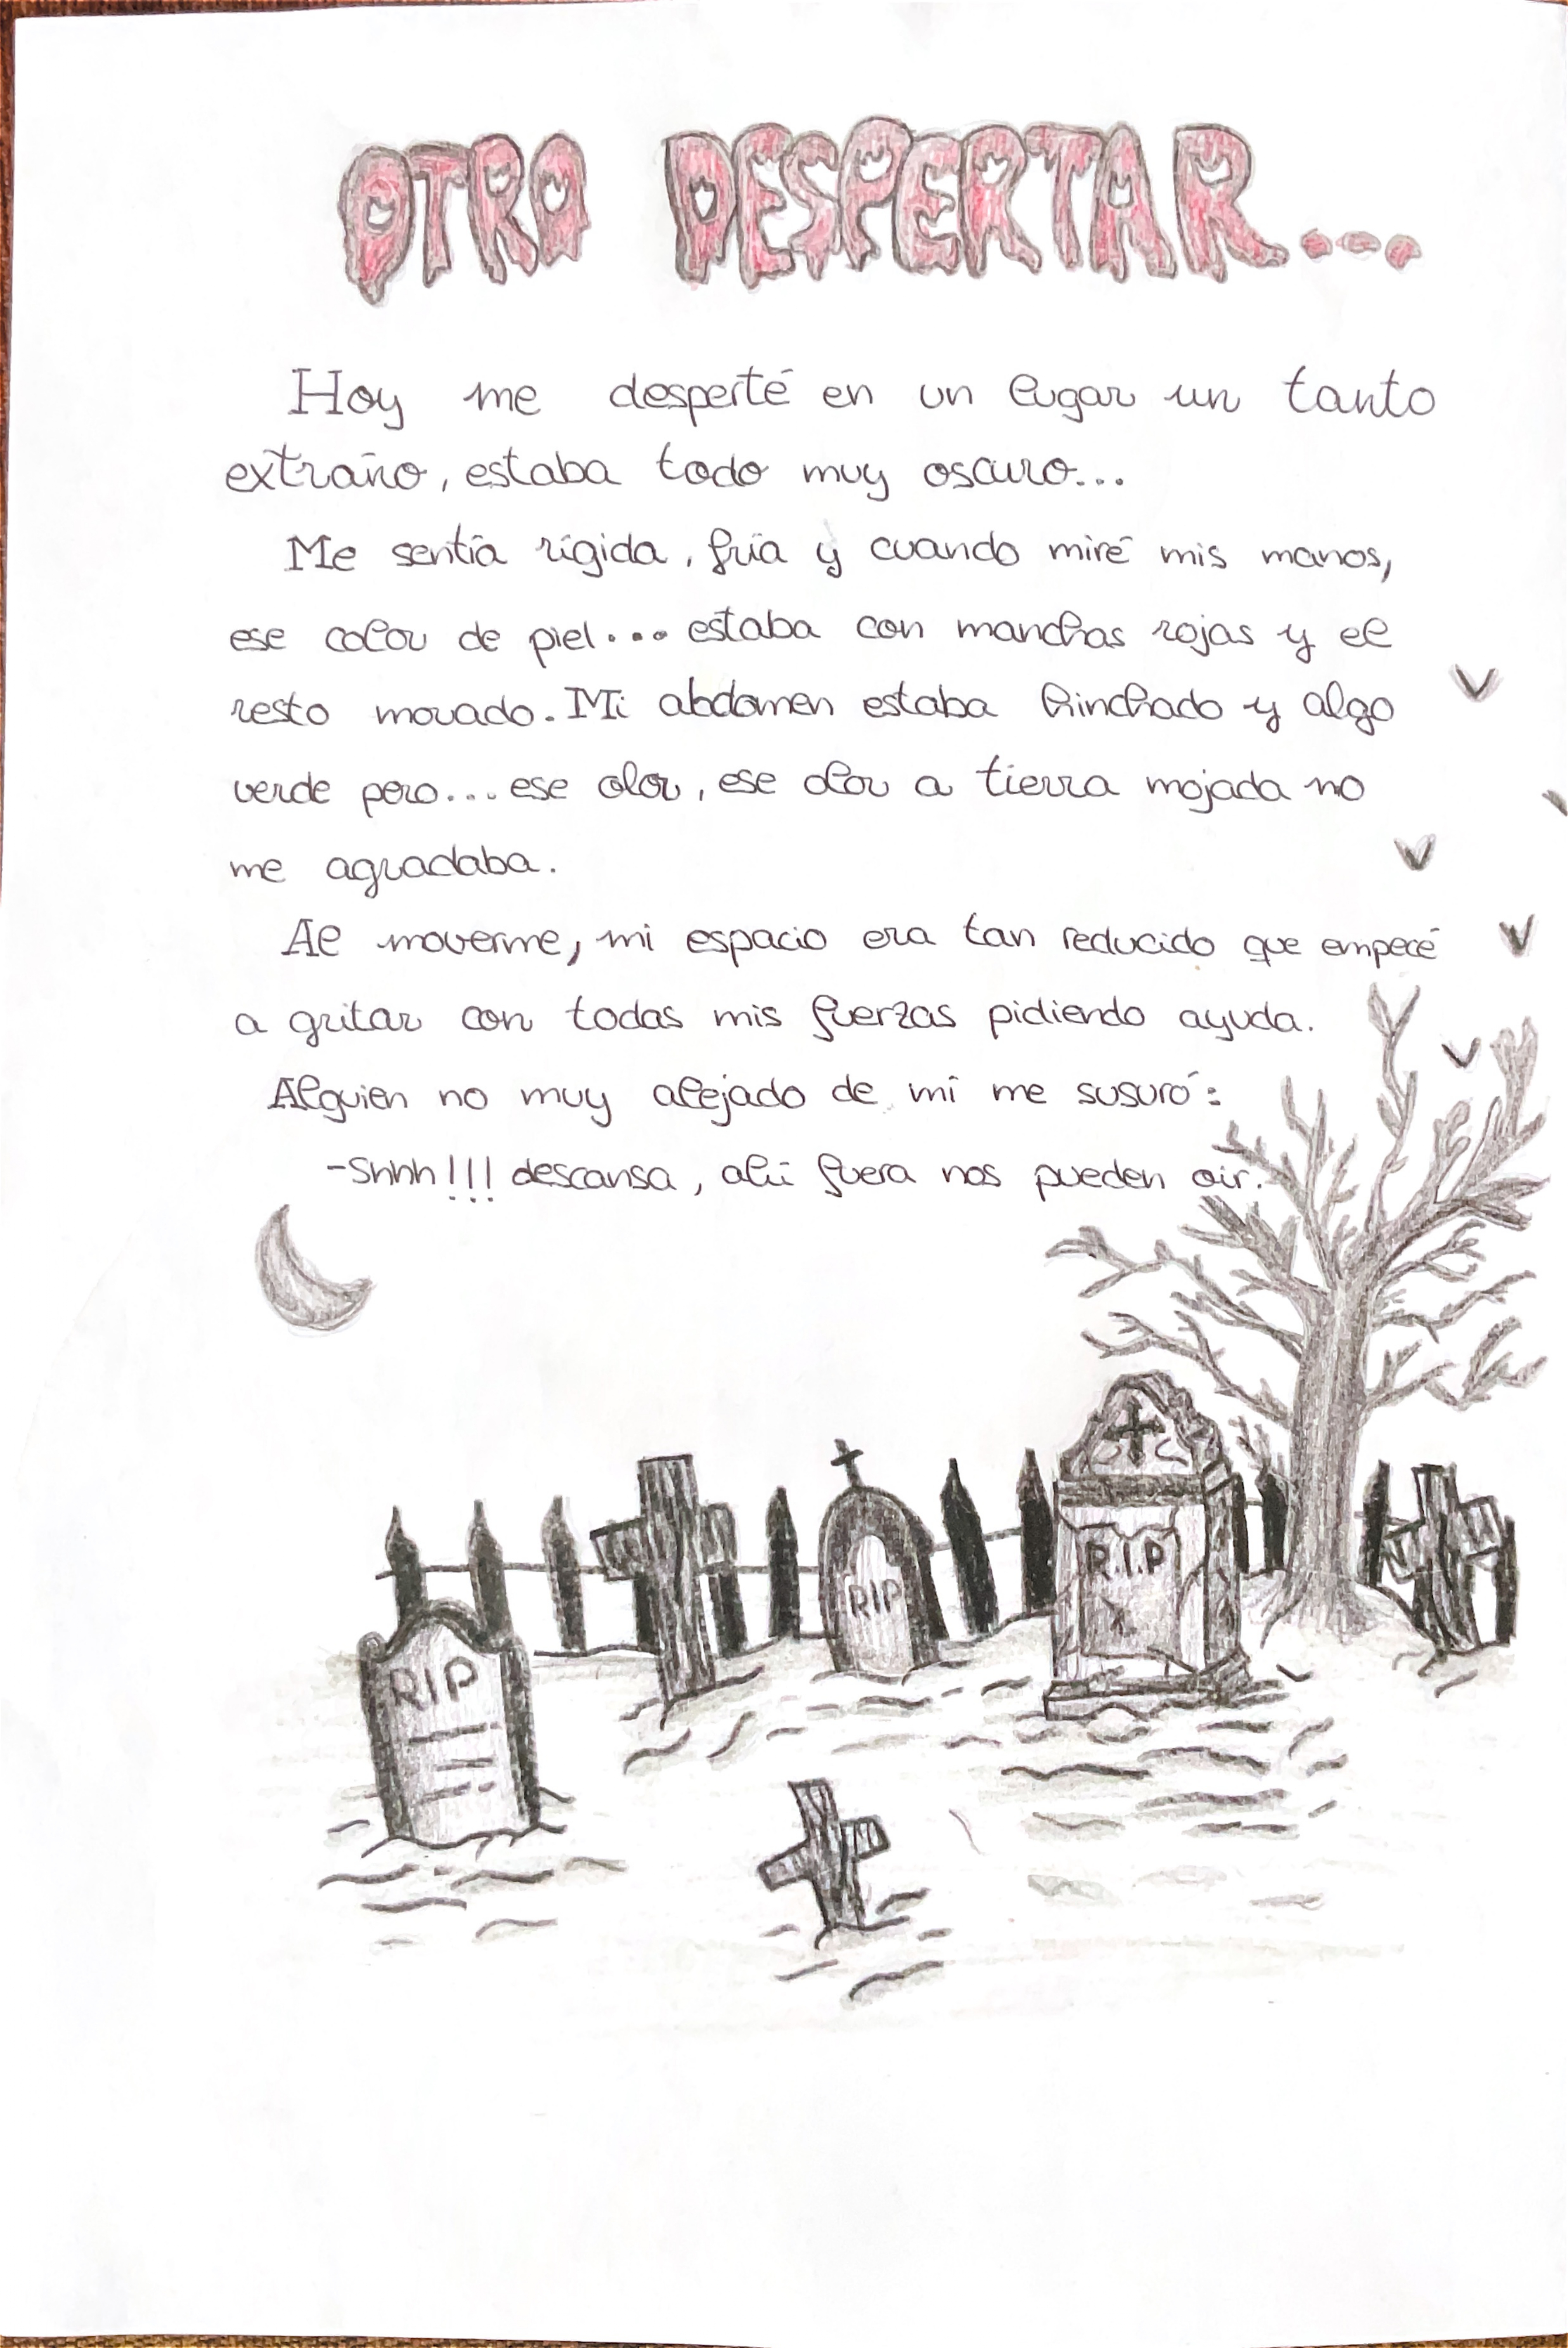 OTRO DESPERTAR...
Hoy me desperté en un lugar un tanto
extraño, estaba todo muy oscuro...
Me sentía rígida, fría y cuando miré mis manos,
ese color de piel... estaba con manchas rojas y el
resto morado. Mi abdomen estaba hinchado y algo
verde pero... ese olor, ese olor a tierra mojada no
me agradaba.
Al moverme, mi espacio era tan reducido que empecé
a gritar con todas mis fuerzas pidiendo ayuda.
Alguien no muy alejado de mí me susuró:
-Shhh!!! descansa, ahí fuera nos pueden oir.
RIP
R.I.P
RIP